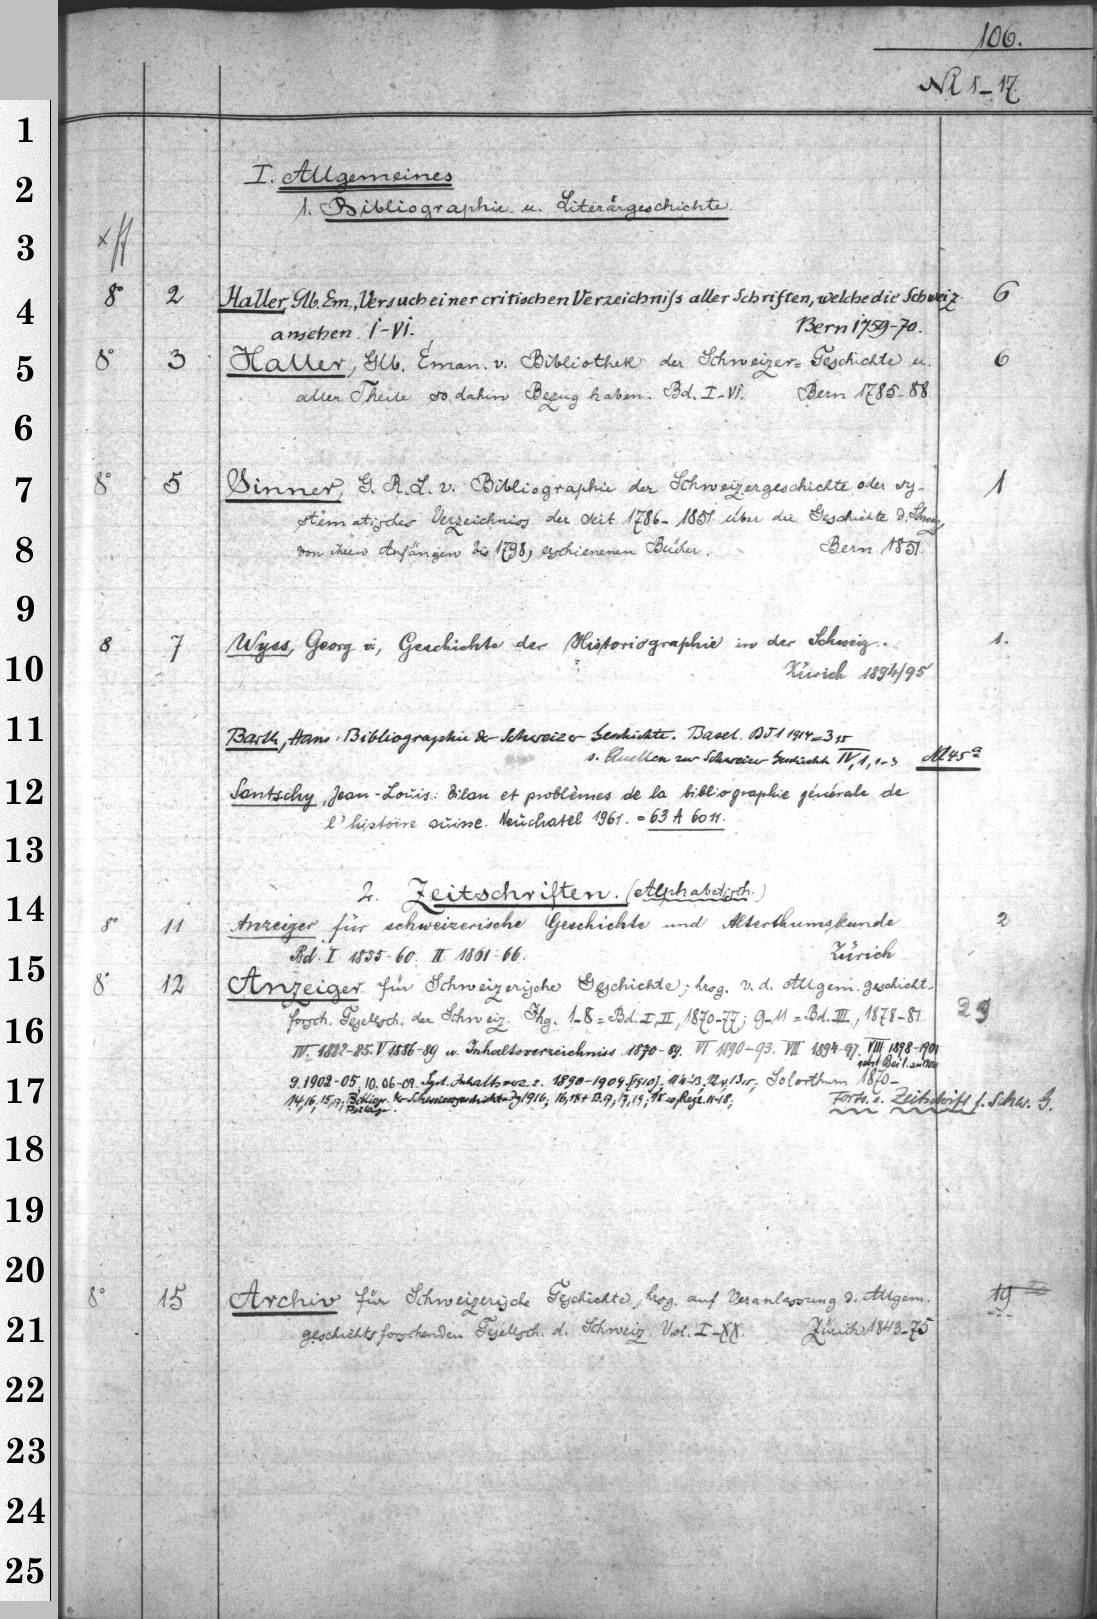 106.
Nl 1-17.
1
I. Allgemeines
2
1. Bibliographie u. Literärgeschichte
3
4
8° 2 Haller, Glb. Em., Versuch einer critischen Verzeichniss aller Schriften, welche die Schweiz 6
ansehen. I-VI. Bern 1759-70.
5
8° 3 Haller, Glb. Eman. v. Bibliothek der Schweizer= Geschichte u. 6
aller Theile so dahin Bezug haben. Bd. I-VI. Bern 1785-88
6
7
8° 5 Sinner, G. R. L. v. Bibliographie der Schweizergeschichte oder sy- 1
stematisches Verzeichniss der seit 1786-1851 über die Geschichte d. Schweiz,
8
von ihren Anfängen bis 1798, erschienenen Bücher. Bern 1851.
9
8 7 Wyss, Georg v., Geschichte der Historiographie in der Schweiz. 1.
10
Zürich 1894/95
11
Barth, Hans: Bibliographie der Schweizer Geschichte. Basel. Bd 1 1914-3 15
s. Quellen zur Schweizer Geschichte IV, 1, 1-3 Nl 45a
12
Santschy, Jean-Louis: Bilan et problèmes de la bibliographie générale de
l'histoire suisse. Neuchatel 1961. = 63 A 6011.
13
2. Zeitschriften. (Alphabetisch.)
14
8° 11 Anzeiger für schweizerische Geschichte und Alterthumskunde 2
Bd. I 1855-60. II 1861-66. Zürich
15
8° 12 Anzeiger für Schweizerische Geschichte; hrsg. v. d. Allgem. geschicht-
16
forsch. Gesellsch. der Schweiz. Jhg. 1-8 = Bd. I, II, 1870-77; 9-11 = Bd. III, 1878-81
IV. 1882-85. V 1886-89 u. Inhaltsverzeichniss 1870-89. VI 1890-93. VII 1894-97. VIII 1898-1901
17
9. 1902-05, 10. 06-09. Syst. Inhaltsverz. z. 1890-1909. Solothurn 1870-
14, 16, 15, 17, Bibliogr. der Schweizergeschichte Jg 1916; Forts. s. Zeitschrift f. Schw. G.
Beilage.
18
19
20
8° 15 Archiv für Schweizerische Geschichte, hrsg. auf Veranlassung d. Allgem. 19
21
geschichtsforschenden Gesellsch. d. Schweiz. Vol. I-XX. Zürich 1843-75
22
23
24
25